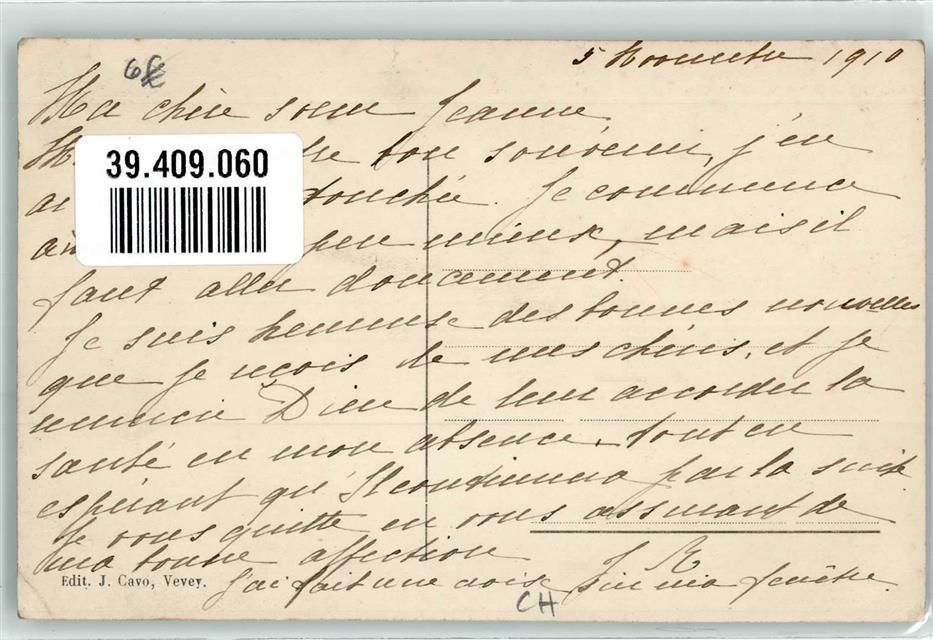 5 Novembre 1910
6
Ma chère soeur Jeanne
ton souvenir, j'en
39.409.060
touchée. Je commence
peu mieux, mais il
faut aller doucement.
Je suis heureuse des bonnes nouvelles
que je reçois de mes chéris, et je
remercie Dieu de leur accorder la
santé en mon absence, tout en
espérant qu'Il continuera par la suite
Je vous quitte en vous assurant de
ma bonne affection
J. R
Edit. J. Cavo, Vevey.
J'ai fait une croix sur ma fenêtre.
CH